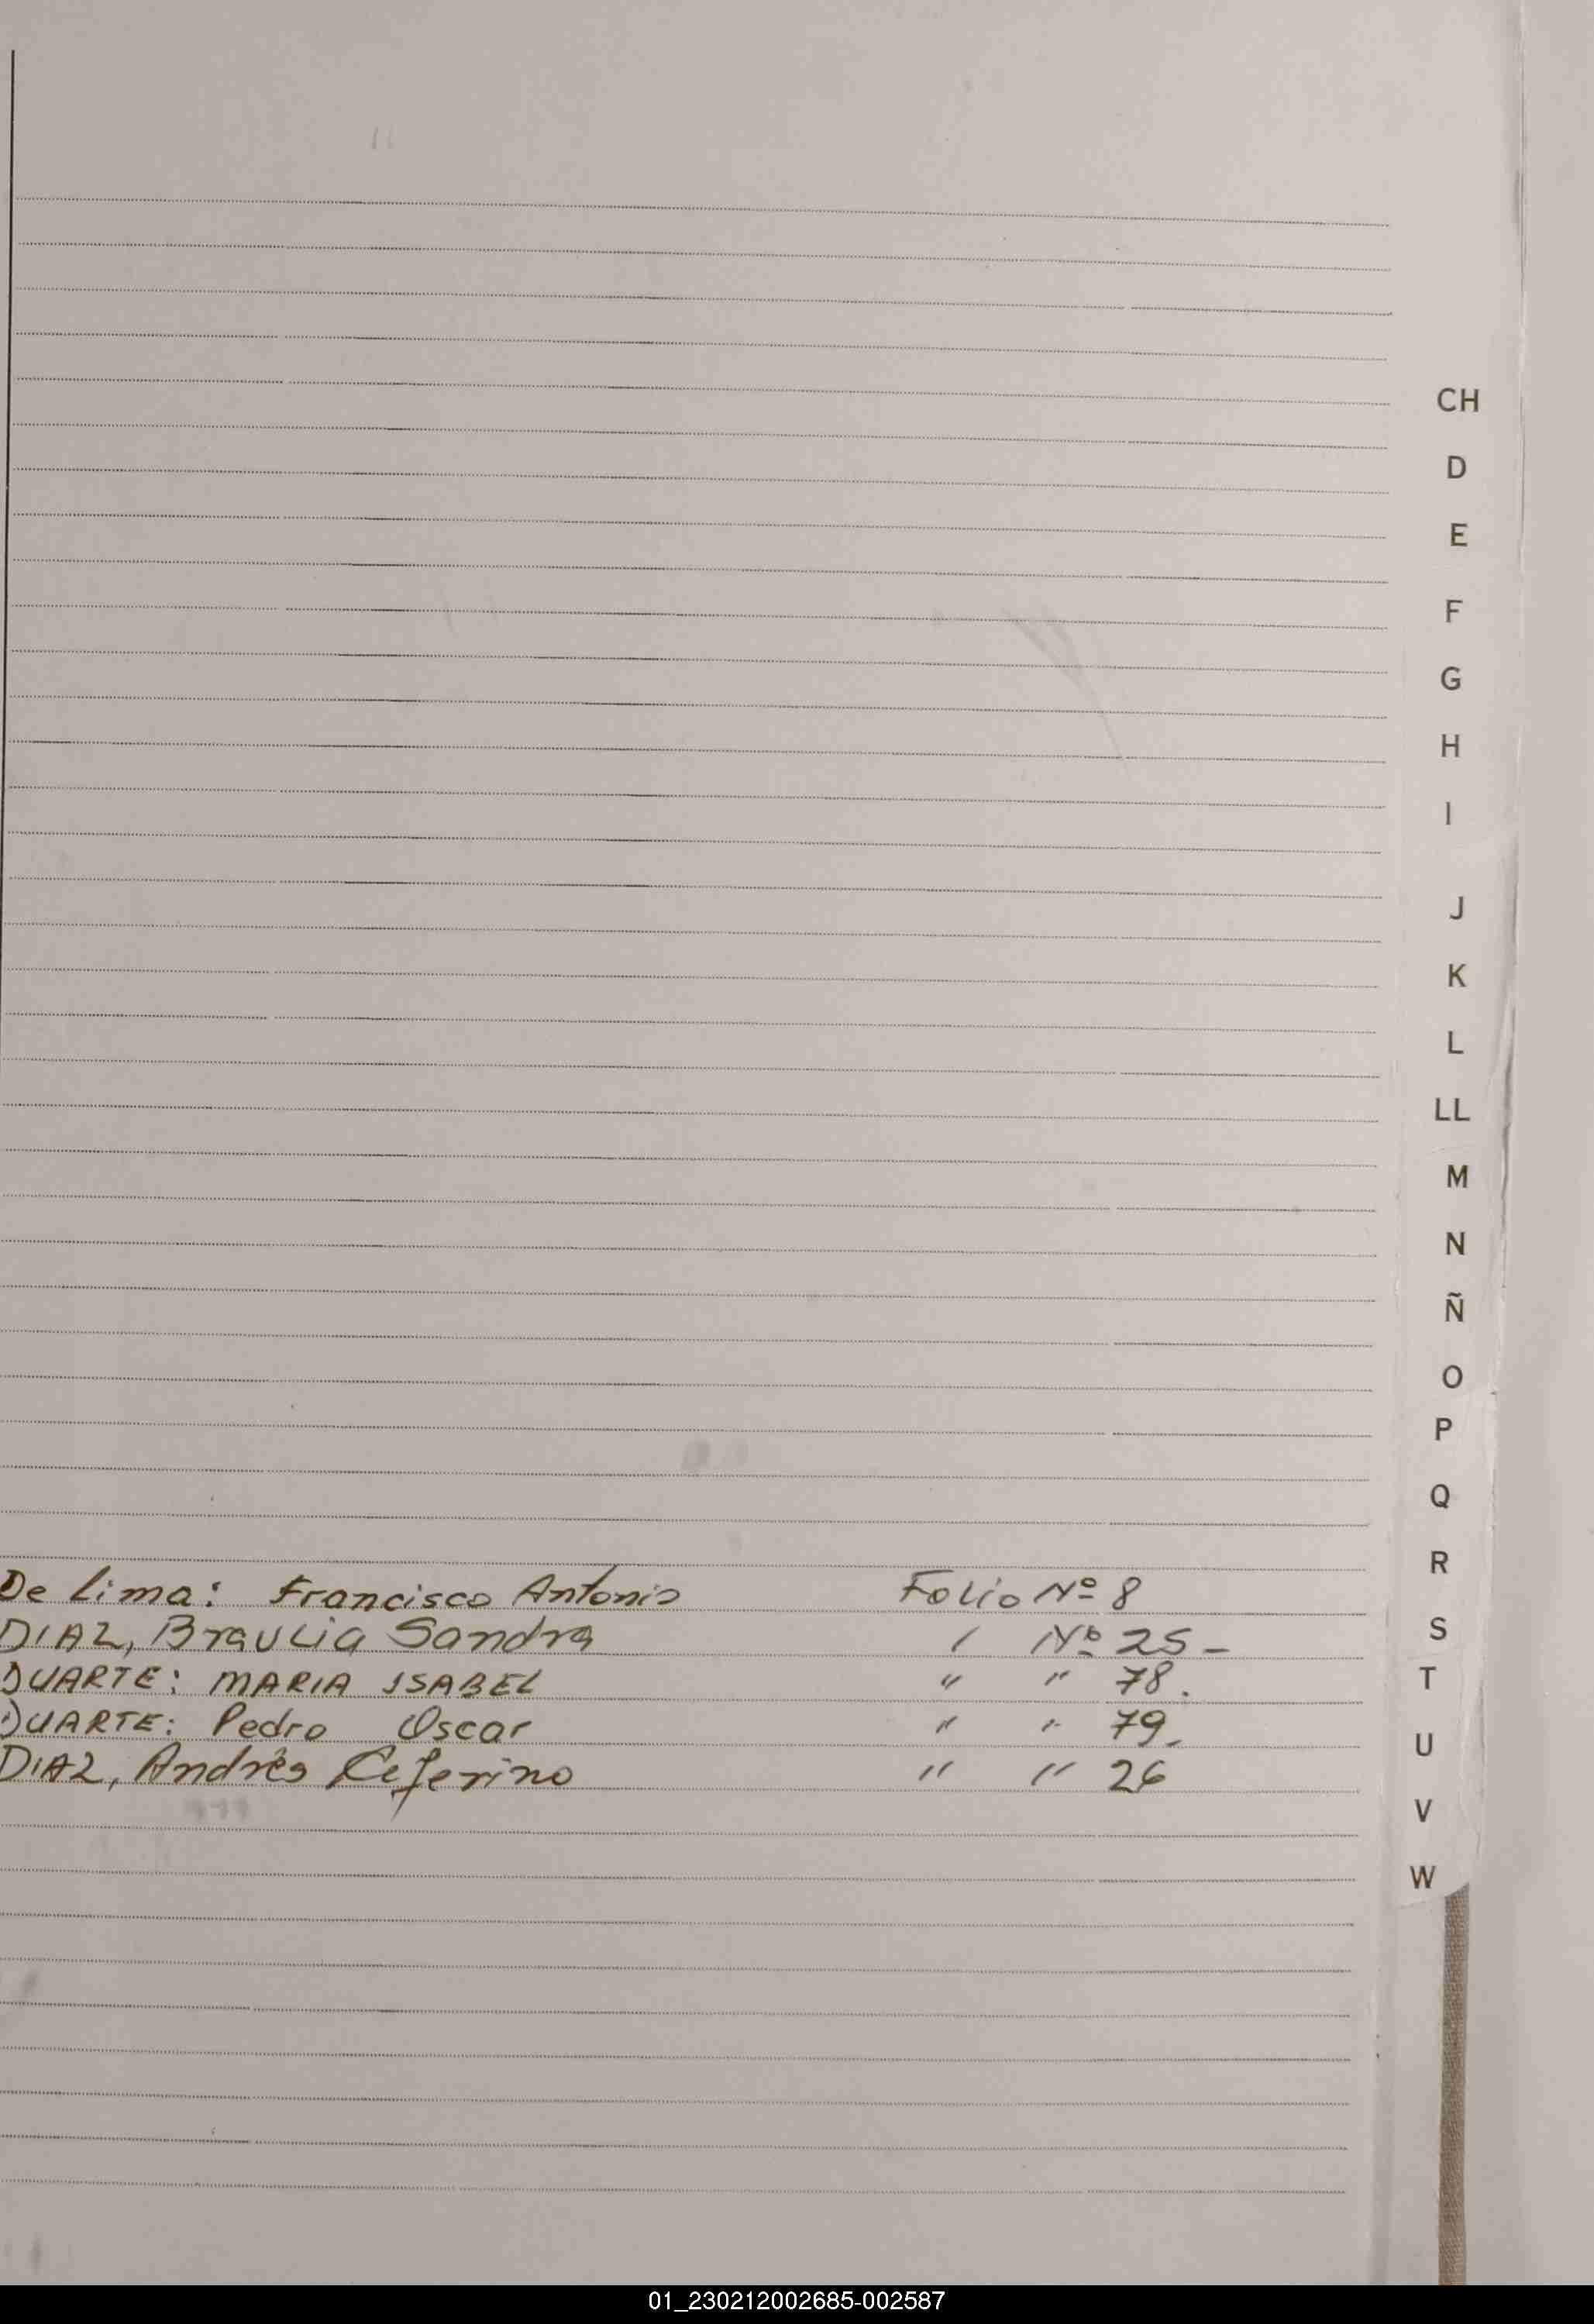 CH
D
E
F
G
H
I
J
K
L
LL
M
N
Ñ
O
P
Q
R
S
T
U
V
W
De Lima: Francisco Antonio Folio Nº 8
DIAZ, Braulia Sandra / Nº 25 -
DUARTE: MARIA ISABEL " " 78.
DUARTE: Pedro Oscar " " 79.
DIAZ, Andrés Ceferino " " 26
01_230212002685-002587